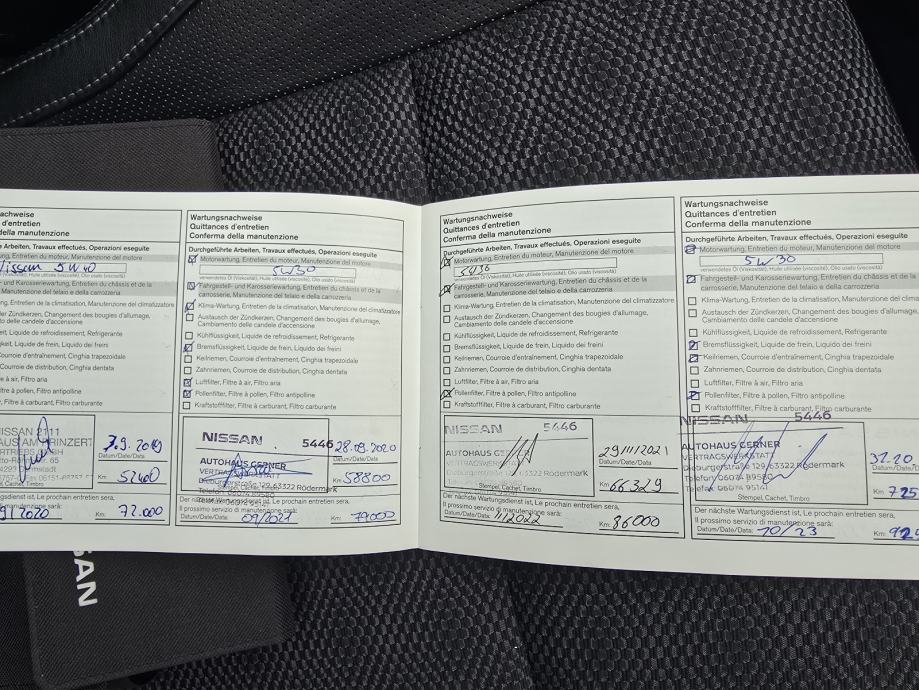 achweise
d'entretien
della manutenzione
e Arbeiten, Travaux effectués, Operazioni eseguite
ng, Entretien du moteur, Manutenzione del motore
Nissan 5W40
- und Karosseriewartung, Entretien du châssis et de la
Manutenzione del telaio e della carrozzeria
ng, Entretien de la climatisation, Manutenzione del climatizzatore
der Zündkerzen, Changement des bougies d'allumage,
ento candele d'accensione
keit, Liquide de refroidissement, Refrigerante
keit, Liquide de frein, Liquido dei freni
Courroie d'entraînement, Cinghia trapezoidale
Courroie de distribution, Cinghia dentata
e à air, Filtro aria
Filtre à pollen, Filtro antipolline
Filtre à carburant, Filtro carburante
NISSAN 2111
7.9.2019
Datum/Date/Data
52400
Km:
Cachet, Timbro
dienst ist, Le prochain entretien sera,
servizio di manutenzione sarà:
9/2020
Km: 72.000
Wartungsnachweise
Quittances d'entretien
Conferma della manutenzione
Durchgeführte Arbeiten, Travaux effectués, Operazioni eseguite
Motorwartung, Entretien du moteur, Manutenzione del motore
5W30
verwendetes Öl (Viskosität), Huile utilisée (viscosité), Olio usato (viscosità)
Fahrgestell- und Karosseriewartung, Entretien du châssis et de la
carrosserie, Manutenzione del telaio e della carrozzeria
Klima-Wartung, Entretien de la climatisation, Manutenzione del climatizzatore
Austausch der Zündkerzen, Changement des bougies d'allumage,
Cambiamento delle candele d'accensione
Kühlflüssigkeit, Liquide de refroidissement, Refrigerante
Bremsflüssigkeit, Liquide de frein, Liquido dei freni
Keilriemen, Courroie d'entraînement, Cinghia trapezoidale
Zahnriemen, Courroie de distribution, Cinghia dentata
Luftfilter, Filtre à air, Filtro aria
Pollenfilter, Filtre à pollen, Filtro antipolline
Kraftstofffilter, Filtre à carburant, Filtro carburante
NISSAN 5446
AUTOHAUS GERNER
28.09.2020
Datum/Date/Data
Km: 58800
Stempel, Cachet, Timbro
Der nächste Wartungsdienst ist, Le prochain entretien sera,
Il prossimo servizio di manutenzione sarà:
Datum/Date/Data: 09/2021
Km: 79000
Wartungsnachweise
Quittances d'entretien
Conferma della manutenzione
Durchgeführte Arbeiten, Travaux effectués, Operazioni eseguite
Motorwartung, Entretien du moteur, Manutenzione del motore
5W30
verwendetes Öl (Viskosität), Huile utilisée (viscosité), Olio usato (viscosità)
Fahrgestell- und Karosseriewartung, Entretien du châssis et de la
carrosserie, Manutenzione del telaio e della carrozzeria
Klima-Wartung, Entretien de la climatisation, Manutenzione del climatizzatore
Austausch der Zündkerzen, Changement des bougies d'allumage,
Cambiamento delle candele d'accensione
Kühlflüssigkeit, Liquide de refroidissement, Refrigerante
Bremsflüssigkeit, Liquide de frein, Liquido dei freni
Keilriemen, Courroie d'entraînement, Cinghia trapezoidale
Zahnriemen, Courroie de distribution, Cinghia dentata
Luftfilter, Filtre à air, Filtro aria
Pollenfilter, Filtre à pollen, Filtro antipolline
Kraftstofffilter, Filtre à carburant, Filtro carburante
NISSAN 5446
AUTOHAUS
29/11/2021
Datum/Date/Data
63322 Rödermark
Km: 66329
Stempel, Cachet, Timbro
Der nächste Wartungsdienst ist, Le prochain entretien sera,
Il prossimo servizio di manutenzione sarà:
Datum/Date/Data: 11/2022
Km: 86000
Wartungsnachweise
Quittances d'entretien
Conferma della manutenzione
Durchgeführte Arbeiten, Travaux effectués, Operazioni eseguite
Motorwartung, Entretien du moteur, Manutenzione del motore
5W30
verwendetes Öl (Viskosität), Huile utilisée (viscosité), Olio usato (viscosità)
Fahrgestell- und Karosseriewartung, Entretien du châssis et de la
carrosserie, Manutenzione del telaio e della carrozzeria
Klima-Wartung, Entretien de la climatisation, Man
Austausch der Zündkerzen, Changement des bougies d'allumage,
Cambiamento delle candele d'accensione
Kühlflüssigkeit, Liquide de refroidissement, Refrigerante
Bremsflüssigkeit, Liquide de frein, Liquido dei freni
Keilriemen, Courroie d'entraînement, Cinghia trapezoidale
Zahnriemen, Courroie de distribution, Cinghia dentata
Luftfilter, Filtre à air, Filtro aria
Pollenfilter, Filtre à pollen, Filtro antipolline
Kraftstofffilter, Filtre à carburant, Filtro carburante
NISSAN 5446
AUTOHAUS GERNER
VERTRAGSWERKSTATT
Dieburgerstraße 129, 63322 Rödermark
Telefon 06074 89580
Datum/Date/Data
Km: 725
Stempel, Cachet, Timbro
Der nächste Wartungsdienst ist, Le prochain entretien sera,
Il prossimo servizio di manutenzione sarà:
Datum/Date/Data: 10/23
Km: 924
SAN